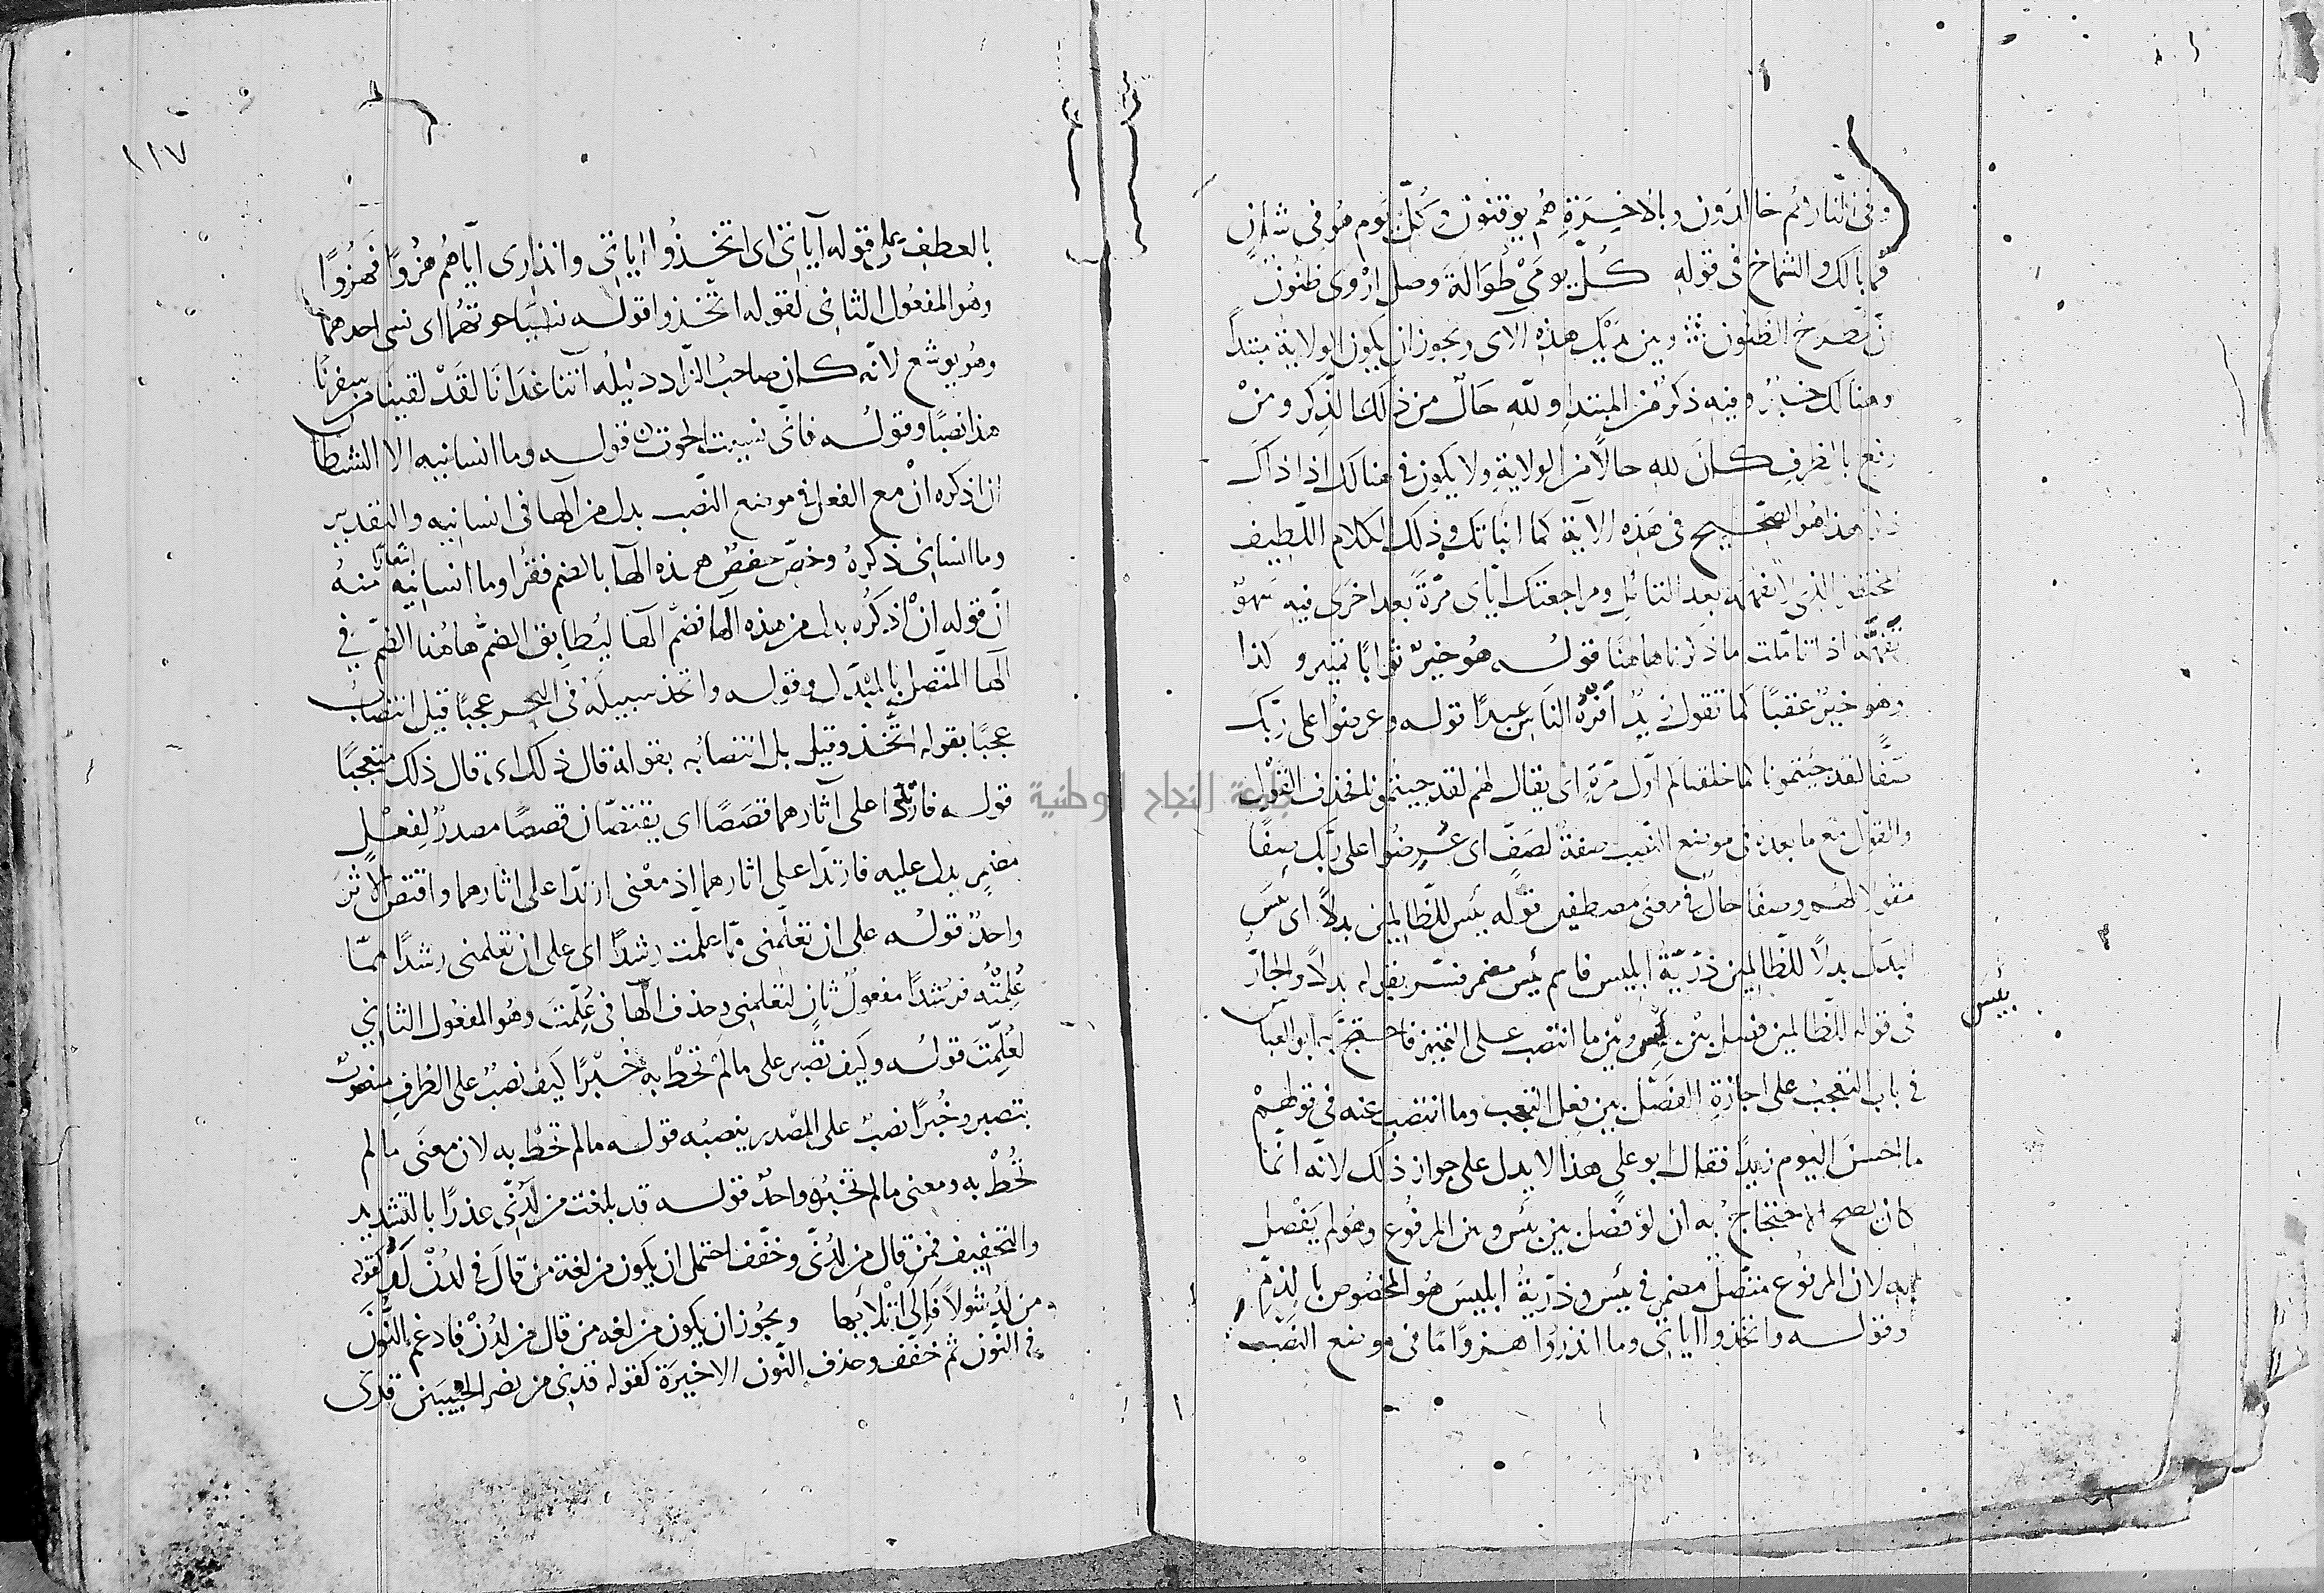 وفي النار هم خالدون وبالاخرة هم يوقنون وكل يوم هو في شأن
فما بالك والشماخ في قوله كلا يومي طوالة وصل اروى ظنون
ان مطرح الظنون وبين تيك هذه الآي ويجوز ان يكون الولاية مبتدأ
وهنالك خبر وفيه ذكر من المبتدا ولله حال من ذلك الذكر ومن
رفع بالظرف كان لله حالا من الولاية ولا يكون في هنالك اذا ذاك
هذا هو الصحيح في هذه الاية كما انباتك وذلك الكلام اللطيف
المختصر الذي لا تفهمه بعد التأمل ومراجعتك اياي مرة بعد اخرى فيه سهو
تفهمه اذا تاملت ما ذكرنا هاهنا قوله هو خير ثوابا تمييز وكذا
وهو خير عقبا كما تقول زيد افره الناس عبدا قوله وعرضوا على ربك
صفا لقد جيتمونا كما خلقناكم اول مرة اي يقال لهم لقد جيتمونا فحذف القول
والقول مع ما بعده في موضع النصب صفة لصف اي عرضوا على ربك صفا
مقولا لهم وصفا حال في معنى مصطفين قوله بئس للظالمين بدلا اي بئس
البدل بدلا للظالمين ذرية ابليس فاسم بئس مضمر فسر بقوله بدلا والجار
في قوله للظالمين فصل بين بئس وبين ما انتصب على التمييز فاحتج به ابو العباس
بئس
في باب التعجب على اجازة الفصل بين فعل التعجب وما انتصب عنه في قولهم
ما احسن اليوم زيدا فقال ابو علي هذا لا يدل على جواز ذلك لانه انما
كان يصح الاحتجاج به ان لو فصل بين بئس وبين المرفوع وهو لم يفصل
به لان المرفوع متصل مضمر في بئس وذرية ابليس هو المخصوص بالذم
وقوله واتخذوا اياتي وما انذروا هزوا ما في موضع النصب
١١٧
بالعطف على قوله آياتي اي اتخذوا اياتي وانذاري اياهم هزوا فهزوا
وهو المفعول الثاني لقوله اتخذوا قوله نسيا حوتهما اي نسي احدهما
وهو يوشع لانه كان صاحب الزاد دليله آتنا غدانا لقد لقينا من سفرنا
هذا نصبا وقوله فاني نسيت الحوت قوله وما انسانيه الا الشيطان
ان اذكره ان مع الفعل في موضع النصب بدل من الهاء في انسانيه والتقدير
وما انساني ذكره وخص حفص هذه الها بالضم فقرا وما انسانيه اتقانا منه
ان قوله ان اذكره بدل من هذه الها فضم الها ليطابق الضم هاهنا الضم في
الها المتصل بالمبدل وقوله واتخذ سبيله في البحر عجبا قيل انتصاب
عجبا بقوله اتخذ وقيل بل انتصابه بقوله قال ذلك اي قال ذلك متعجبا
قوله فارتدا على آثارهما قصصا اي يقتصان قصصا مصدر لفعل
مضمر يدل عليه فارتدا على اثارهما اذ معنى ارتدا على اثارهما واقتص الاثر
واحد قوله على ان تعلمني مما علمت رشدا اي على ان تعلمني رشدا مما
علمته فرشدا مفعول ثان لتعلمني وحذف الها في علمت وهو المفعول الثاني
لعلمت قوله وكيف تصبر على ما لم تحط به خبرا كيف نصب على الظرف منصوب
بتصبر وخبرا نصب على المصدر ينصبه قوله ما لم تحط به لان معنى ما لم
تحط به ومعنى ما لم تخبره واحد قوله قد بلغت من لدني عذرا بالتشديد
والتخفيف فمن قال من لدني وخفف احتمل ان يكون من لغة من قال في لدن لد كقوله
من لد شولا فالى اتلائها ويجوز ان يكون من لغه من قال من لدن فادغم النون
في النون ثم خفف وحذف النون الاخيرة كقوله قدني من نصر الخبيبين قدي
جامعة النجاح الوطنية